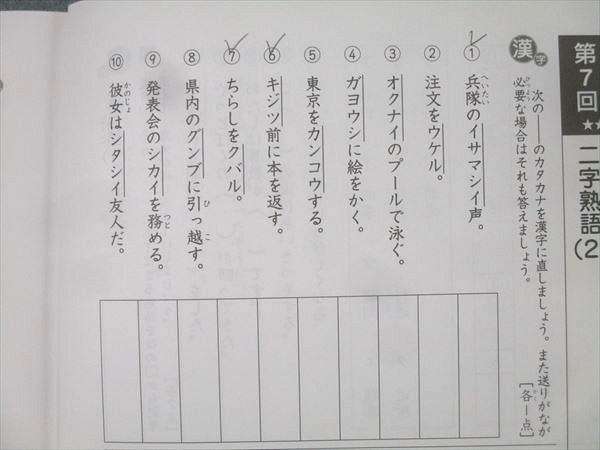 第7回 ★★ 二字熟語(2
漢字
次の――のカタカナを漢字に直しましょう。また送りがなが
必要な場合はそれも答えましょう。
[各一点]
① 兵隊のイサマシイ声。
② 注文をウケル。
③ オクナイのプールで泳ぐ。
④ ガヨウシに絵をかく。
⑤ 東京をカンコウする。
⑥ キジツ前に本を返す。
⑦ ちらしをクバル。
⑧ 県内のグンブに引っ越す。
⑨ 発表会のシカイを務める。
⑩ 彼女はシタシイ友人だ。